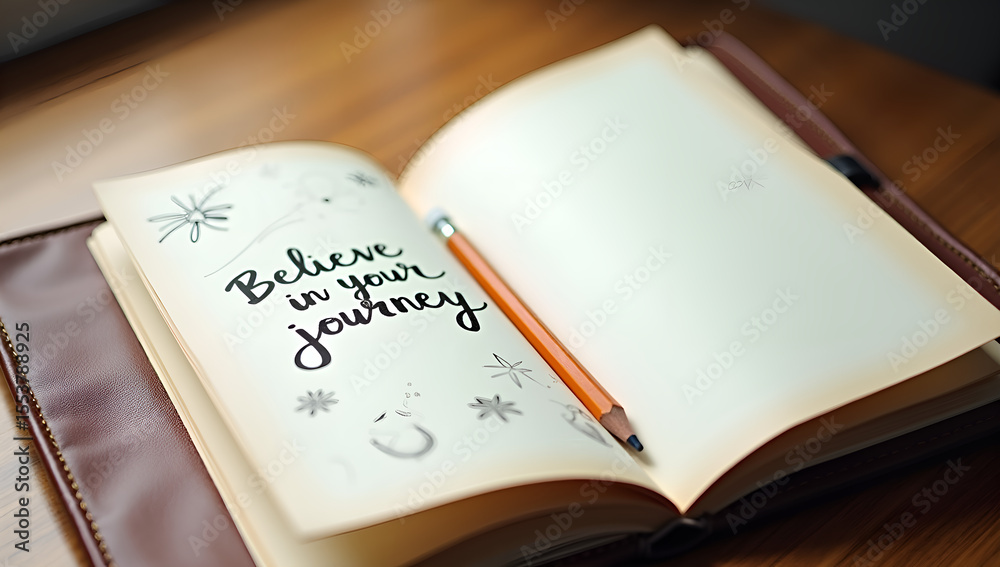 Believe
in your
journey
Adobe Stock | #1553788925